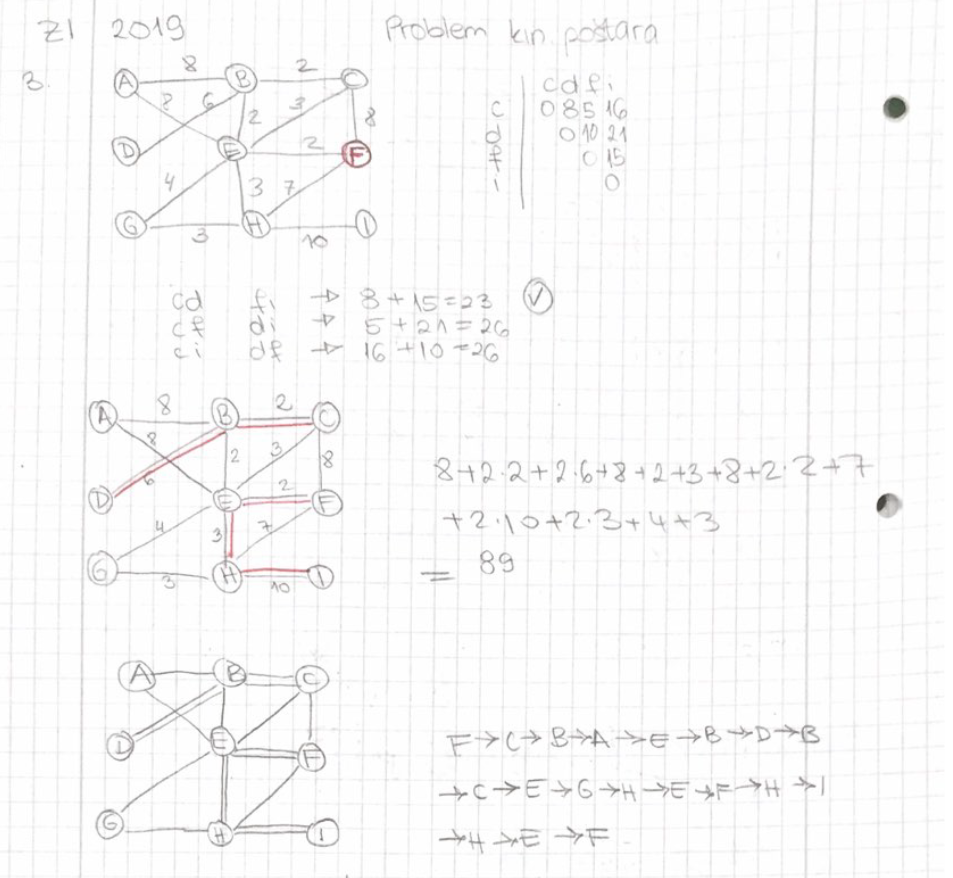 ZI 2019 Problem kin. poštara
3.
A 8 B 2 C
8 6 2 3 8
D E 2 F
4 3 7
G 3 H 10 I
c d f i
c 0 8 5 16
d 0 10 21
f 0 15
i 0
cd fi → 8 + 15 = 23 ✓
cf di → 5 + 21 = 26
ci df → 16 + 10 = 26
A 8 B 2 C
8 6 2 3 8
D E 2 F
4 3 7
G 3 H 10 I
8 + 2·2 + 2·6 + 8 + 2 + 3 + 8 + 2·2 + 7
+ 2·10 + 2·3 + 4 + 3
= 89
A B C
D E F
G H I
F → C → B → A → E → B → D → B
→ C → E → G → H → E → F → H → I
→ H → E → F